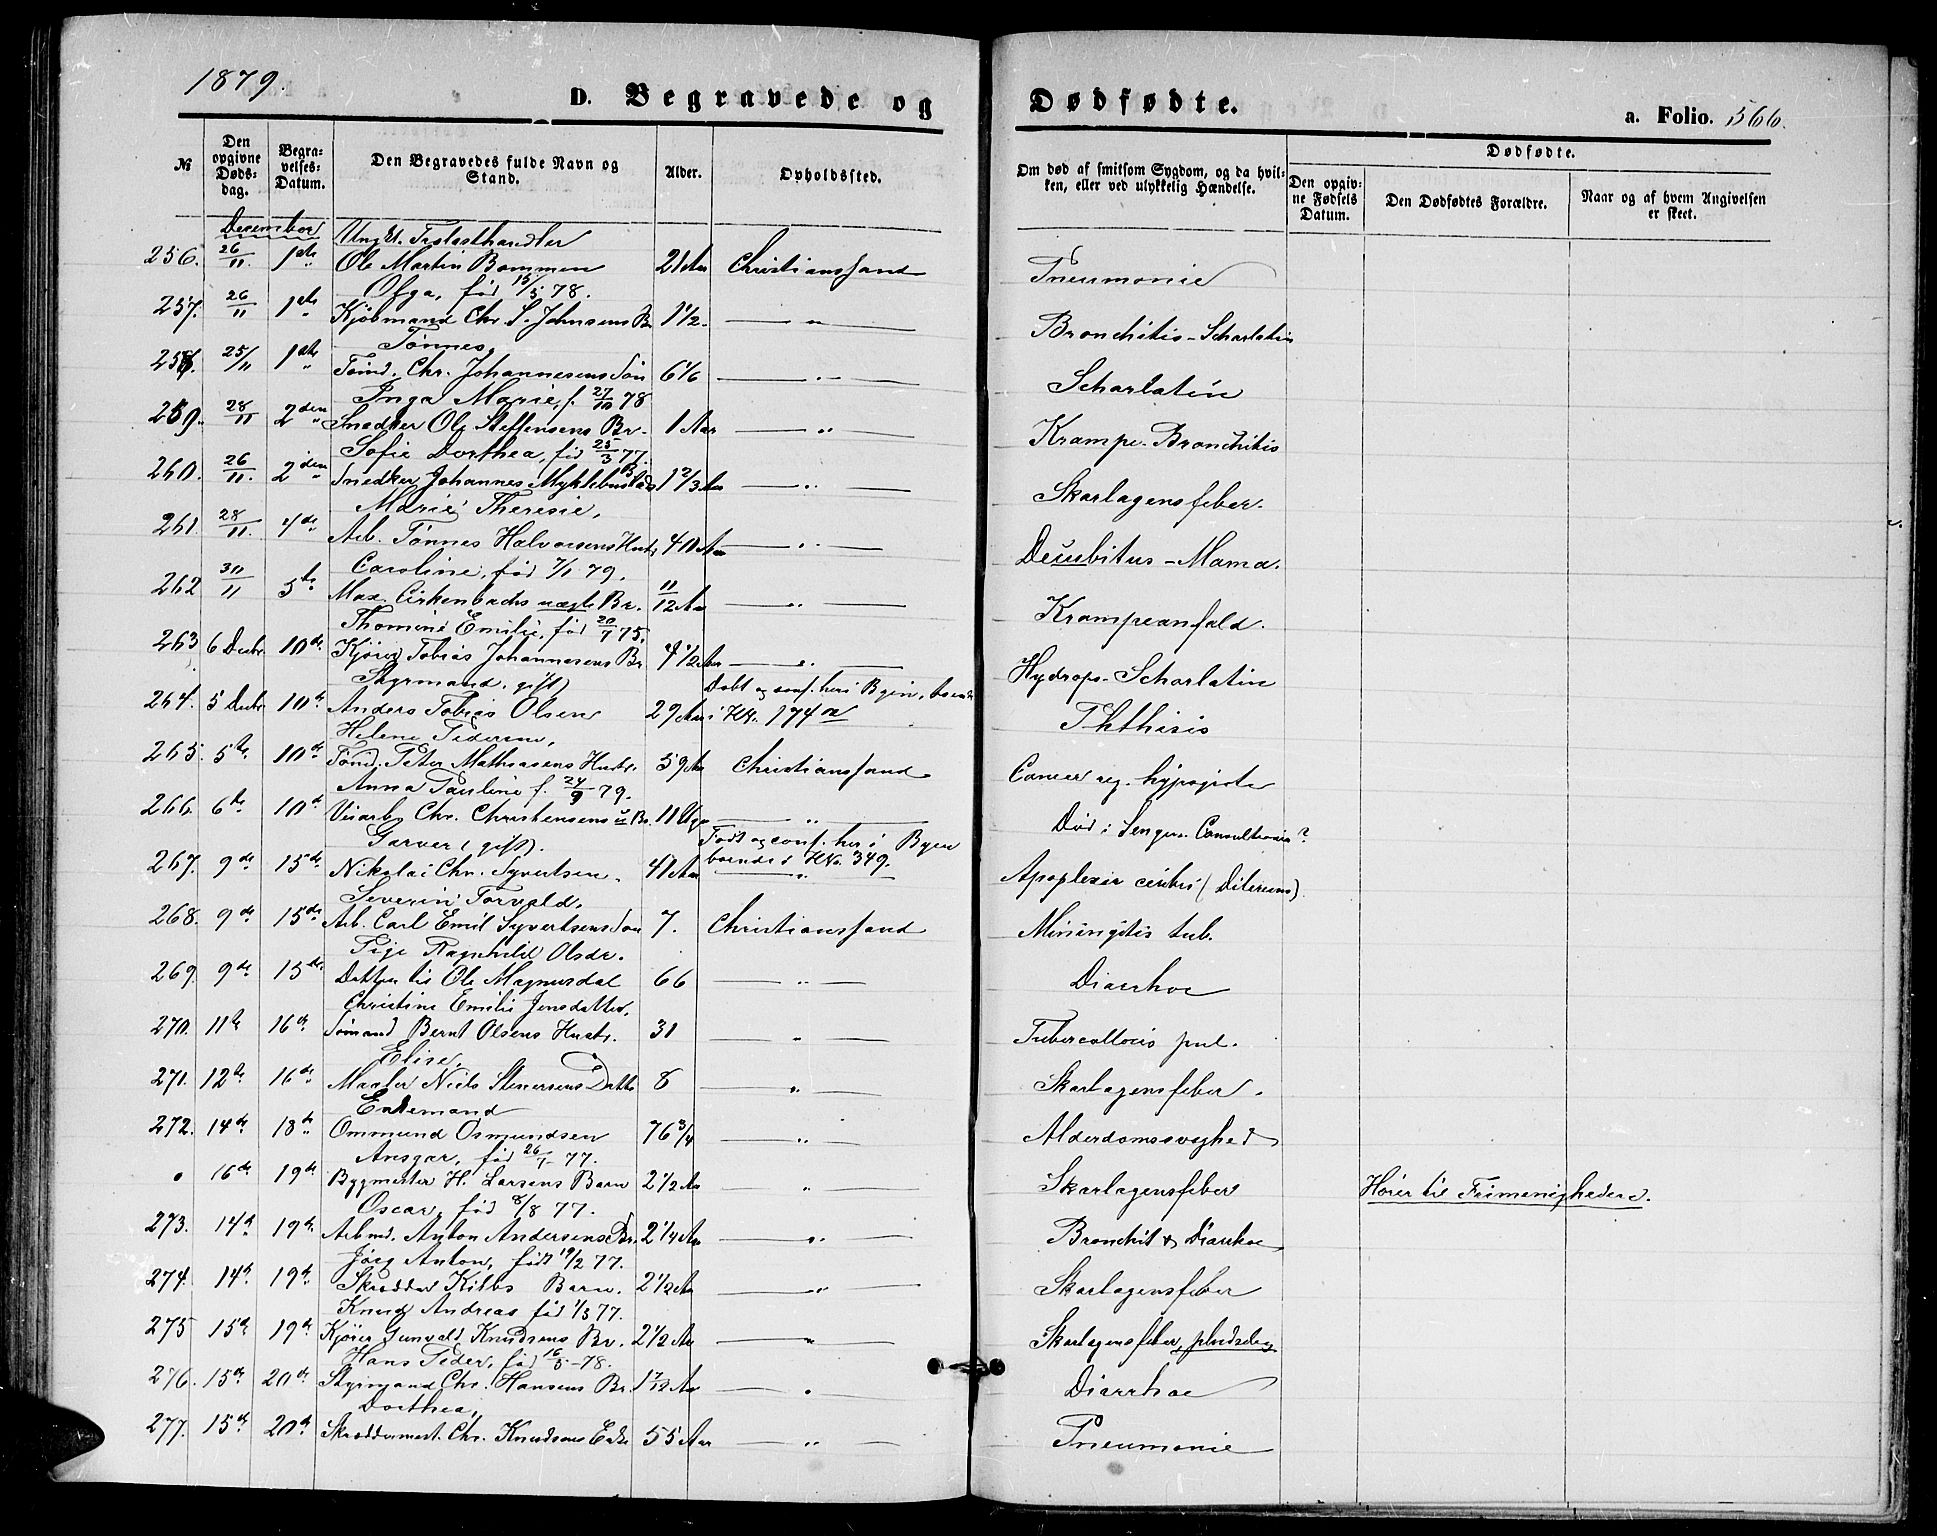 1879.
D. Begravede og Dødfødte.
a. Folio. 566.
№
Den opgivne Døds-dag.
Begra-velses-Datum.
Den Begravedes fulde Navn og Stand.
Alder.
Opholdssted.
Om død af smitsom Sygdom, og da hvil-ken, eller ved ulykkelig Hændelse.
Dødfødte.
Den opgiv-ne Fødsels Datum.
Den Dødfødtes Forældre.
Naar og af hvem Angivelsen er skeet.
December
256. 26/11. 1ste Ole Martin Bommen 21 Aar Christianssand Pneumonie
Olga, fød 15/5 78.
257. 26/11 1ste Kjøbmand Chr. S. Johnsens Br 1 1/2. — " — Bronchitis-Scharlatin
Tønnes,
258. 25/11 1ste Tømd. Chr. Johannesens Søn 6 1/6 — " — Scharlatin
Inga Marie, f. 27/10 78
259. 28/11 2den Snedker Ole Steffensens Br. 1 Aar — " — Krampe-Bronchitis
Sofie Dorthea, fød 25/3 77.
260. 26/11. 2den Snedker Johannes Myklebustads B. 1 2/3 Aar — " — Skarlagensfeber.
Marie Theresie,
261. 28/11. 4de Arb. Tønnes Halvorsens Hustr. 40 Aar — " — Decubitus-Mama.
Caroline, fød 7/1 79.
262 30/11 5te Max Cirkenbachs uægte Br. 11/12 Aar — " — Krampeanfald.
Thomine Emilie, fød 20/7 75.
263 6 Decbr. 10de Kjører Tobias Johannesens Br 4 1/2 Aar — " — Hydrops-Scharlatin
Styrmand, gift
264. 5 Decbr. 10de Anders Tobias Olsen 29 Aar Døbt og conf. her i Byen, boende i HN. 174 a Phthisis
Helene Pedersen,
265. 5te 10de Tømd. Peter Mathiasens Hustr. 59 Aar Christianssand Cancer reg. hypogastr
Anna Pauline f. 24/9 79.
266. 6te 10de Chr. Christensens u Br. 11 Uger — " — Død i Sengen. ?
Garver (gift).
267. 9de 15de Nikolai Chr. Syvertsen. 41 Aar Født og conf. her i Byen boende i HNo. 349. Apoplexia cerebri (Dilirium).
Severin Torvald.
268. 9de 15de Arb. Carl Emil Syvertsens Søn 7. Christianssand Miningitis tub.
Pige Ragnhild Olsdr.
269. 9de 15de Datter til Ole Magnusdal 66 — " — Diarrhoe
Christine Emilie Jensdatter,
270. 11te 16de Sømand Bernt Olsens Hustr. 31 — " — Tubercollosis pul.
Elise,
271. 12te 16de Maaler Niels Steinersens Datter 8 — " — Skarlagensfeber.
Enkemand
272. 14de 18de Ommund Osmundsen 76 3/4 — " — Alderdomssvaghed
Ansgar, fød 26/7 77.
" 16de 19de Bygmester H. Larsens Barn 2 1/2 Aar — " — Skarlagensfeber Hører til Frimenigheden.
Oscar, fød 8/8 77.
273. 14de 19de Arbmd. Anton Andersens Br. 2 1/4 Aar — " — Bronchit & Diarrhoe
Jørg Anton, født 19/2 77.
274. 14de 19de Skrædder Kilbs Barn. 2 1/2 Aar — " — Skarlagensfeber
Knud Andreas fød 1/5 77.
275 15de 19de Kjører Gunvald Knudsens Br. 2 1/2 Aar — " — Skarlagensfeber, pludselig
Hans Peder, fød 16/5 -78.
276. 15de 20de Styrmand Chr. Hansens Br. 1 7/12 Aar — " — Diarrhoe
Dorthea,
277. 15de 20de Skræddermest. Chr. Knudsens Enke 55 Aar — " — Pneumonie